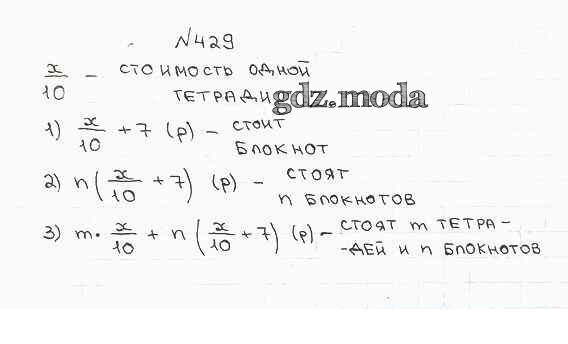 №429
x/10 – стоимость одной
тетради
gdz.moda
1) x/10 + 7 (р) – стоит
блокнот
2) n(x/10 + 7) (р) – стоят
n блокнотов
3) m · x/10 + n(x/10 + 7) (р) – стоят m тетра-
-дей и n блокнотов